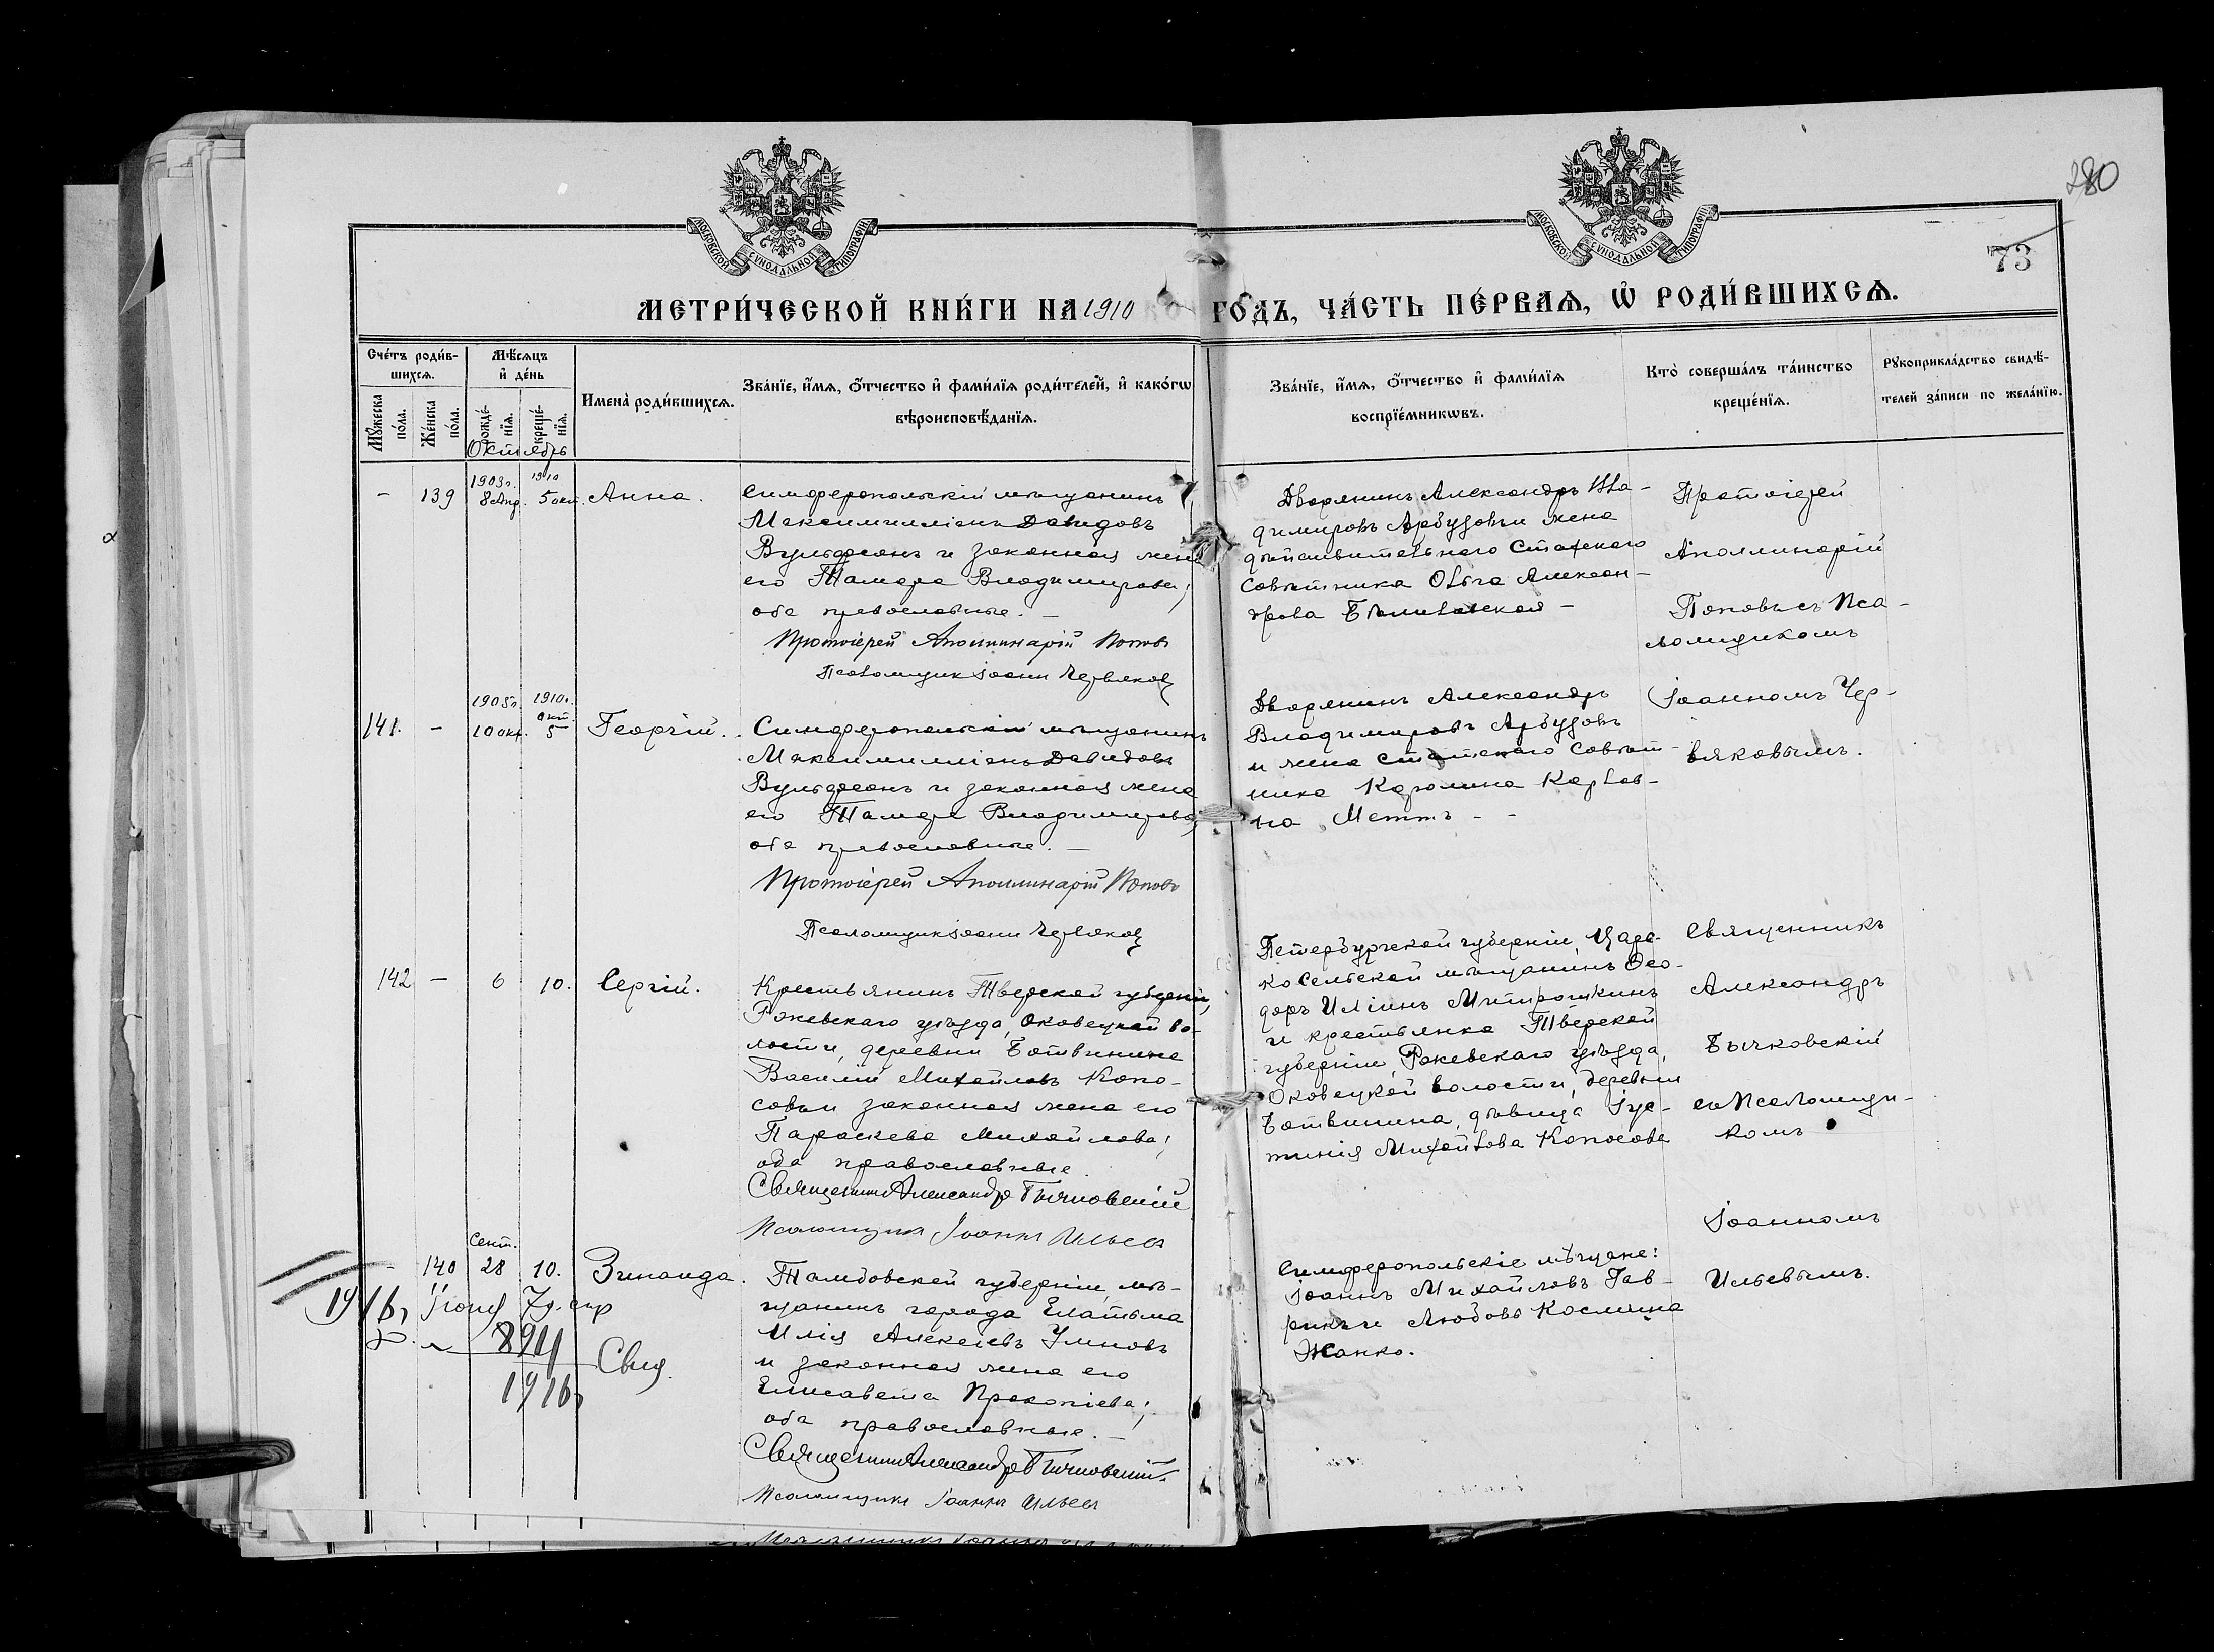 280
73
МОСКОВСКОЙ СѴНОДАЛЬНОЙ ТИПОГРАФІИ
МОСКОВСКОЙ СѴНОДАЛЬНОЙ ТИПОГРАФІИ
МЕТРИ́ЧЕСКОЙ КНИ́ГИ НА 1910 ГО́ДЪ, ЧА́СТЬ ПЕ́РВАѦ, Ѽ РОДИ́ВШИХСѦ.
Сче́тъ роди́в-
шихсѧ.
Мꙋ́жеска по́ла.
Же́нска по́ла.
Мѣ́сѧцъ
и҆ де́нь
рожде́-
нїѧ.
креще́-
нїѧ.
Октябрь
Имена̀ роди́вшихсѧ.
Зва́нїе, и҆́мѧ, ѻ҆́тчество и҆ фами́лїѧ роди́телей, и҆ како́гѡ
вѣроисповѣ́данїѧ.
Зва́нїе, и҆́мѧ, ѻ҆́тчество и҆ фами́лїѧ
воспрїе́мникѡвъ.
Кто̀ соверша́лъ та́инство
креще́нїѧ.
Рꙋкоприкла́дство свидѣ́-
телей за́писи по жела́нїю.
- 139
1903г. 8 Апр.
1910 5 окт.
Анна.
Симферопольскій мѣщанинъ
Максимиліанъ Давидовъ
Вульфсонъ и законная жена
его Тамара Владимірова;
оба православные. —
Протоіерей Аполлинарій Поповъ
Псаломщик Іоанн Червяков
Дворянинъ Александръ Вла-
димировъ Арбузовъ и жена
дѣйствительнаго Статскаго
Совѣтника Ольга Алексан-
дрова —
Протоіерей
Аполлинарій
Поповъ съ Пса-
ломщикомъ
Іоанномъ Чер-
вяковымъ.
141. -
1905г. 10 окт.
1910г. окт. 5
Георгій.
Симферопольскій мѣщанинъ
Максимилліанъ Давидовъ
Вульфсонъ и законная жена
его Тамара Владимірова,
оба православные. —
Протоіерей Аполлинарій Поповъ
Псаломщик Іоанн Червяков
Дворянинъ Александръ
Владиміровъ Арбузовъ
и жена статскаго Совѣт-
ника Каролина Карлов-
на Меттъ - -
142 — 6 10. Сергій.
Крестьянинъ Тверской губерніи,
Ржевскаго уѣзда, Оковецкой во-
лости, деревни Ботвинина
Василій Михайловъ Копо-
совъ и законная жена его
Параскева Михайлова;
оба православные.
Священникъ Александръ Бычковскій
Псаломщикъ Іоаннъ Ильевъ
Петербургской губерніи, Царс-
косельской мѣщанинъ Ѳео-
доръ Иліинъ Митрошкинъ
и крестьянка Тверской
губерніи, Ржевскаго уѣзда,
Оковецкой волости, деревни
Ботвинина, дѣвица Іус-
тинія Михайлова Копосова
Священникъ
Александръ
Бычковскій
съ Псаломщи-
комъ
Іоанномъ
Ильевымъ.
- 140
Сент. 28 10. Зинаида.
Тамбовской губерніи, мѣ-
щанинъ города Елатьма
Илія Алексіевъ Умновъ
и законная жена его
Елисавета Прокопіева;
оба православные. —
Священникъ Александръ Бычковскій
Псаломщикъ Іоаннъ Ильевъ
Симферопольскіе мѣщане:
Іоаннъ Михайловъ Гав-
рикъ и Любовь Космина
Жанко.
1916г
1916г